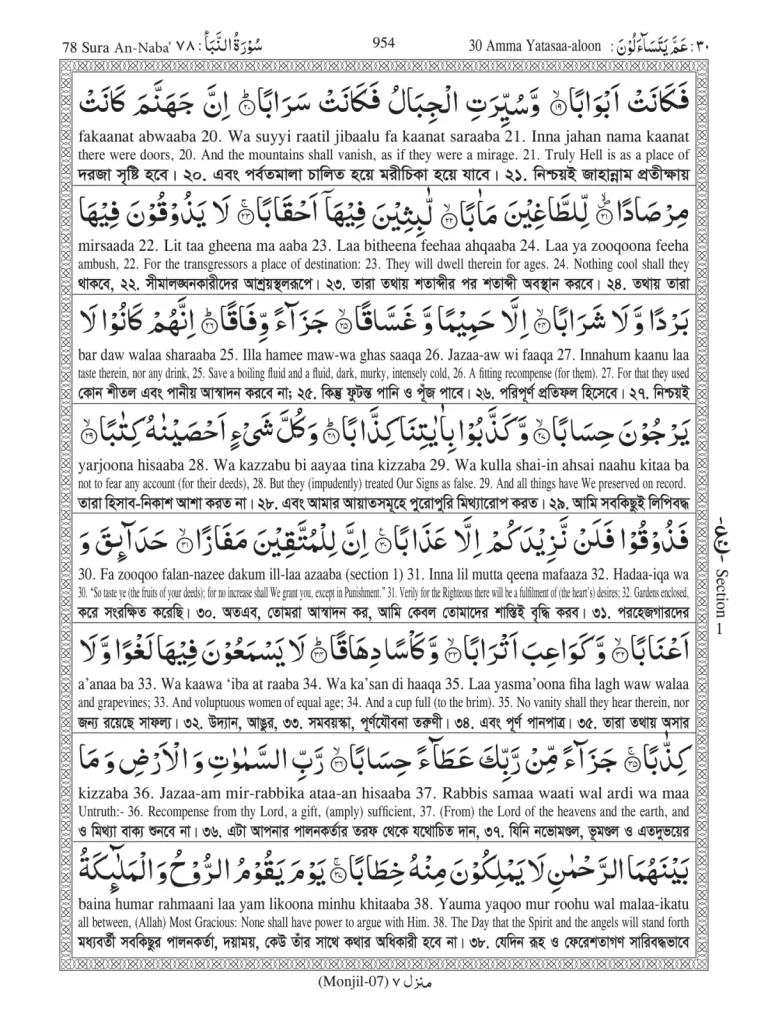 78 Sura An-Naba' ٧٨ : سُوْرَةُ النَّبَأ 954 30 Amma Yatasaa-aloon : عَمَّ يَتَسَآءَلُوْنَ : ٣٠
فَكَانَتْ اَبْوَابًا ۙ﴿١٩﴾ وَّسُيِّرَتِ الْجِبَالُ فَكَانَتْ سَرَابًا ؕ﴿٢٠﴾ اِنَّ جَهَنَّمَ كَانَتْ
fakaanat abwaaba 20. Wa suyyi raatil jibaalu fa kaanat saraaba 21. Inna jahan nama kaanat
there were doors, 20. And the mountains shall vanish, as if they were a mirage. 21. Truly Hell is as a place of
দরজা সৃষ্টি হবে। ২০. এবং পর্বতমালা চালিত হয়ে মরীচিকা হয়ে যাবে। ২১. নিশ্চয়ই জাহান্নাম প্রতীক্ষায়
مِرْصَادًا ۪ۙ﴿٢١﴾ لِّلطَّاغِيْنَ مَاٰبًا ۙ﴿٢٢﴾ لّٰبِثِيْنَ فِيْهَاۤ اَحْقَابًا ۚ﴿٢٣﴾ لَا يَذُوْقُوْنَ فِيْهَا
mirsaada 22. Lit taa gheena ma aaba 23. Laa bitheena feehaa ahqaaba 24. Laa ya zooqoona feeha
ambush, 22. For the transgressors a place of destination: 23. They will dwell therein for ages. 24. Nothing cool shall they
থাকবে, ২২. সীমালঙ্ঘনকারীদের আশ্রয়স্থলরূপে। ২৩. তারা তথায় শতাব্দীর পর শতাব্দী অবস্থান করবে। ২৪. তথায় তারা
بَرْدًا وَّ لَا شَرَابًا ۙ﴿٢٤﴾ اِلَّا حَمِيْمًا وَّ غَسَّاقًا ۙ﴿٢٥﴾ جَزَآءً وِّفَاقًا ؕ﴿٢٦﴾ اِنَّهُمْ كَانُوْا لَا
bar daw walaa sharaaba 25. Illa hamee maw-wa ghas saaqa 26. Jazaa-aw wi faaqa 27. Innahum kaanu laa
taste therein, nor any drink, 25. Save a boiling fluid and a fluid, dark, murky, intensely cold, 26. A fitting recompense (for them). 27. For that they used
কোন শীতল এবং পানীয় আস্বাদন করবে না; ২৫. কিন্তু ফুটন্ত পানি ও পূঁজ পাবে। ২৬. পরিপূর্ণ প্রতিফল হিসেবে। ২৭. নিশ্চয়ই
يَرْجُوْنَ حِسَابًا ۙ﴿٢٧﴾ وَّ كَذَّبُوْا بِاٰيٰتِنَا كِذَّابًا ؕ﴿٢٨﴾ وَ كُلَّ شَيْءٍ اَحْصَيْنٰهُ كِتٰبًا ۙ﴿٢٩﴾
yarjoona hisaaba 28. Wa kazzabu bi aayaa tina kizzaba 29. Wa kulla shai-in ahsai naahu kitaa ba
not to fear any account (for their deeds), 28. But they (impudently) treated Our Signs as false. 29. And all things have We preserved on record.
তারা হিসাব-নিকাশ আশা করত না। ২৮. এবং আমার আয়াতসমূহে পুরোপুরি মিথ্যারোপ করত। ২৯. আমি সবকিছুই লিপিবদ্ধ
فَذُوْقُوْا فَلَنْ نَّزِيْدَكُمْ اِلَّا عَذَابًا ۠﴿٣٠﴾ اِنَّ لِلْمُتَّقِيْنَ مَفَازًا ۙ﴿٣١﴾ حَدَآئِقَ وَ
30. Fa zooqoo falan-nazee dakum ill-laa azaaba (section 1) 31. Inna lil mutta qeena mafaaza 32. Hadaa-iqa wa
30. “So taste ye (the fruits of your deeds); for no increase shall We grant you, except in Punishment.” 31. Verily for the Righteous there will be a fulfilment of (the heart’s) desires; 32. Gardens enclosed,
করে সংরক্ষিত করেছি। ৩০. অতএব, তোমরা আস্বাদন কর, আমি কেবল তোমাদের শাস্তিই বৃদ্ধি করব। ৩১. পরহেজগারদের
ع
Section 1
اَعْنَابًا ۙ﴿٣٢﴾ وَّ كَوَاعِبَ اَتْرَابًا ۙ﴿٣٣﴾ وَّ كَاْسًا دِهَاقًا ؕ﴿٣٤﴾ لَا يَسْمَعُوْنَ فِيْهَا لَغْوًا وَّ لَا
a’anaa ba 33. Wa kaawa ‘iba at raaba 34. Wa ka’san di haaqa 35. Laa yasma’oona fiha lagh waw walaa
and grapevines; 33. And voluptuous women of equal age; 34. And a cup full (to the brim). 35. No vanity shall they hear therein, nor
জন্য রয়েছে সাফল্য। ৩২. উদ্যান, আঙুর, ৩৩. সমবয়স্কা, পূর্ণযৌবনা তরুণী। ৩৪. এবং পূর্ণ পানপাত্র। ৩৫. তারা তথায় অসার
كِذّٰبًا ۚ﴿٣٥﴾ جَزَآءً مِّنْ رَّبِّكَ عَطَآءً حِسَابًا ۙ﴿٣٦﴾ رَّبِّ السَّمٰوٰتِ وَ الْاَرْضِ وَ مَا
kizzaba 36. Jazaa-am mir-rabbika ataa-an hisaaba 37. Rabbis samaa waati wal ardi wa maa
Untruth:- 36. Recompense from thy Lord, a gift, (amply) sufficient, 37. (From) the Lord of the heavens and the earth, and
ও মিথ্যা বাক্য শুনবে না। ৩৬. এটা আপনার পালনকর্তার তরফ থেকে যথোচিত দান, ৩৭. যিনি নভোমণ্ডল, ভূমণ্ডল ও এতদুভয়ের
بَيْنَهُمَا الرَّحْمٰنِ لَا يَمْلِكُوْنَ مِنْهُ خِطَابًا ۚ﴿٣٧﴾ يَوْمَ يَقُوْمُ الرُّوْحُ وَ الْمَلٰٓئِكَةُ
baina humar rahmaani laa yam likoona minhu khitaaba 38. Yauma yaqoo mur roohu wal malaa-ikatu
all between, (Allah) Most Gracious: None shall have power to argue with Him. 38. The Day that the Spirit and the angels will stand forth
মধ্যবর্তী সবকিছুর পালনকর্তা, দয়াময়, কেউ তাঁর সাথে কথার অধিকারী হবে না। ৩৮. যেদিন রূহ ও ফেরেশতাগণ সারিবদ্ধভাবে
(Monjil-07) منزل ٧